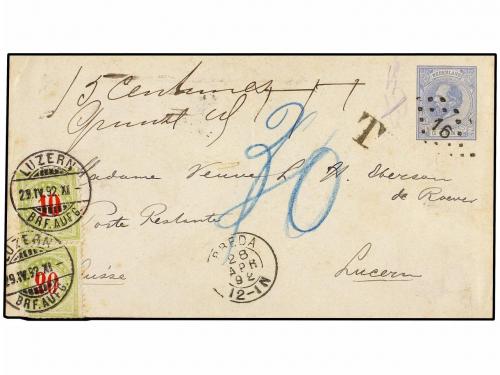 15 Centimes
NEDERLAND
T
16
30
LUZERN
29.IV.92.XI
BRF.AUFG.
10
Madame Veuve L. H.
de Roever
Poste Restante
LUZERN
29.IV.92.XI
BRF.AUFG.
20
BREDA
28
APR
92
12-1N
Suisse
Lucern